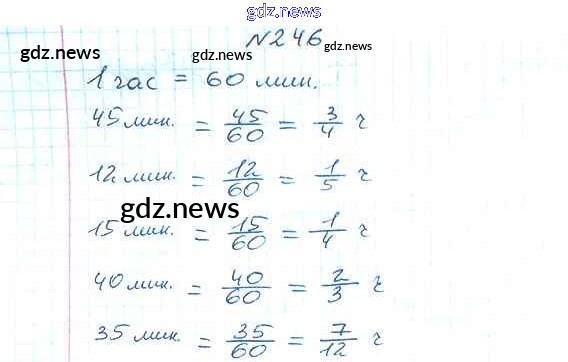 gdz.news
№246
gdz.news gdz.news
1 час = 60 мин.
45 мин. = 45/60 = 3/4 ч
12 мин. = 12/60 = 1/5 ч
gdz.news
15 мин. = 15/60 = 1/4 ч
40 мин. = 40/60 = 2/3 ч
35 мин. = 35/60 = 7/12 ч
gdz.news